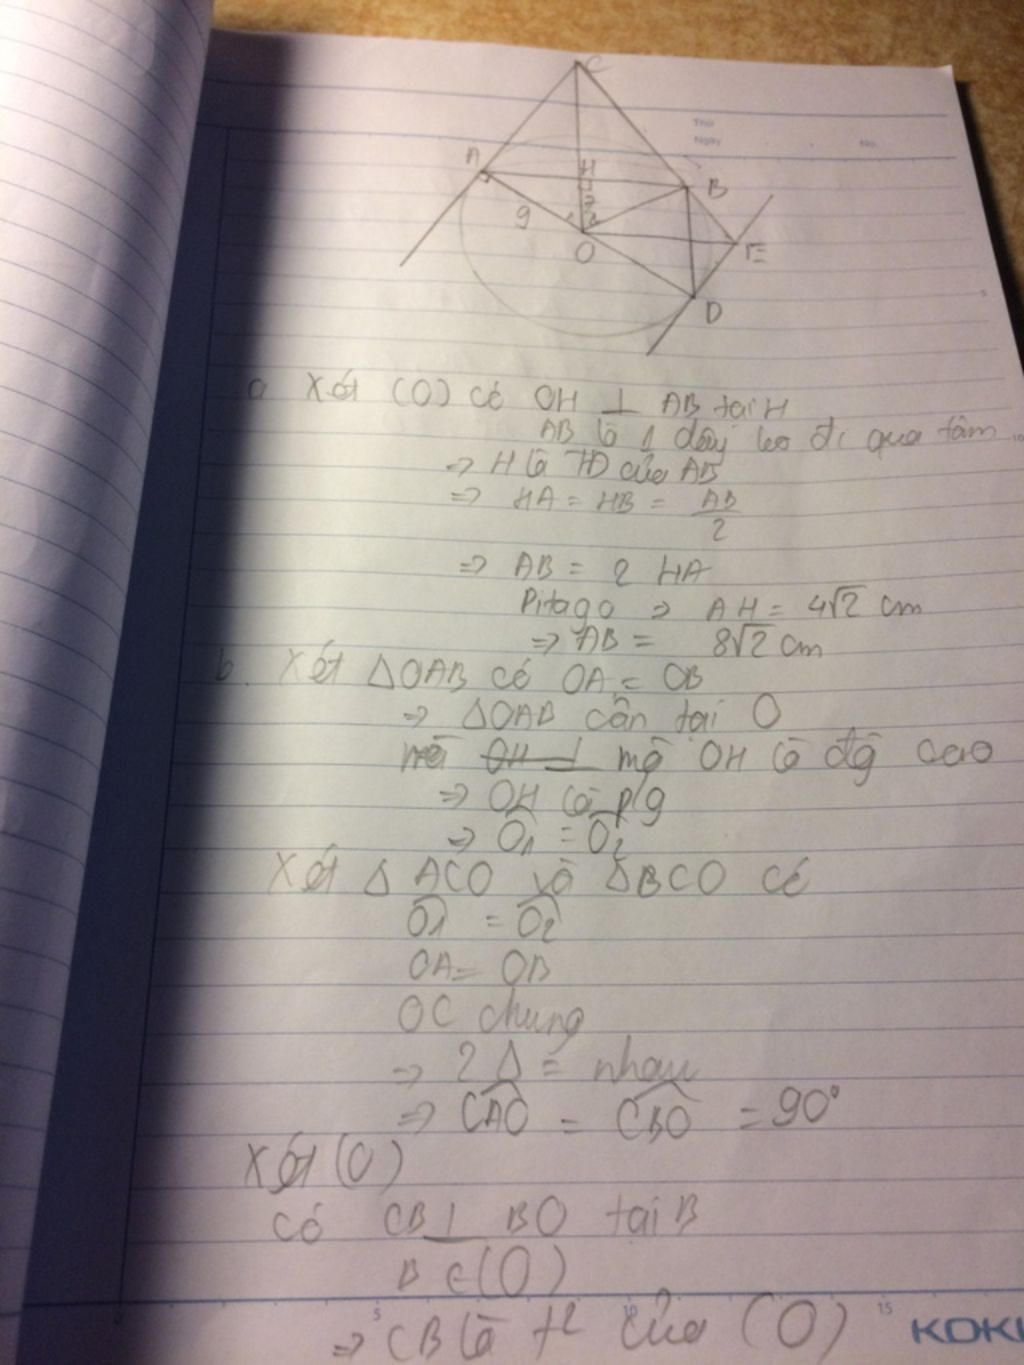 C
Thứ
Ngày No.
A H B
9 1 2
O E
D
a Xét (O) có OH ⊥ AB tại H
AB là 1 dây ko đi qua tâm
⇒ H là TĐ của AB
⇒ HA = HB = AB/2
⇒ AB = 2 HA
Pitago ⇒ AH = 4√2 cm
⇒ AB = 8√2 cm
b. Xét ΔOAB có OA = OB
⇒ ΔOAB cân tại O
mà OH ⊥ mà OH là đg cao
⇒ OH là p/g
⇒ Ô1 = Ô2
Xét Δ ACO và ΔBCO có
Ô1 = Ô2
OA = OB
OC chung
⇒ 2 Δ = nhau
⇒ CAO = CBO = 90°
Xét (O)
có CB ⊥ BO tại B
B ∈ (O)
5 10 15
⇒ CB là t² của (O)
KOKU